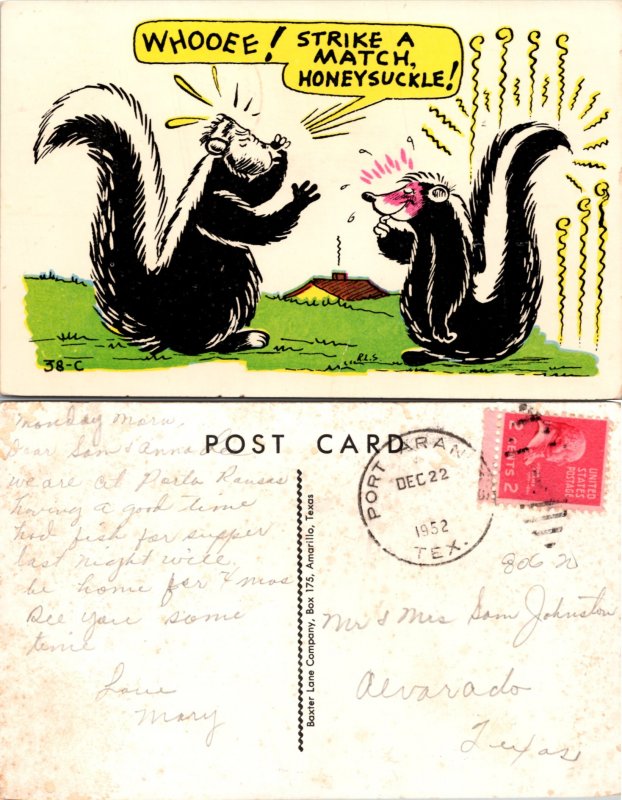 WHOOEE! STRIKE A
MATCH,
HONEYSUCKLE!
38-C
R.L.S
POST CARD
Monday Morn,
Dear Sam & Anna
we are at Porta Ransas
having a good time
had fish for supper
last night will
be home for X mas
see you some
time
Love
Mary
Baxter Lane Company, Box 175, Amarillo, Texas
PORT ARAN
DEC 22
1952
TEX.
2 CENTS 2
UNITED
STATES
POSTAGE
806 N
Mr & Mrs Sam Johnston
Alvarado
Texas